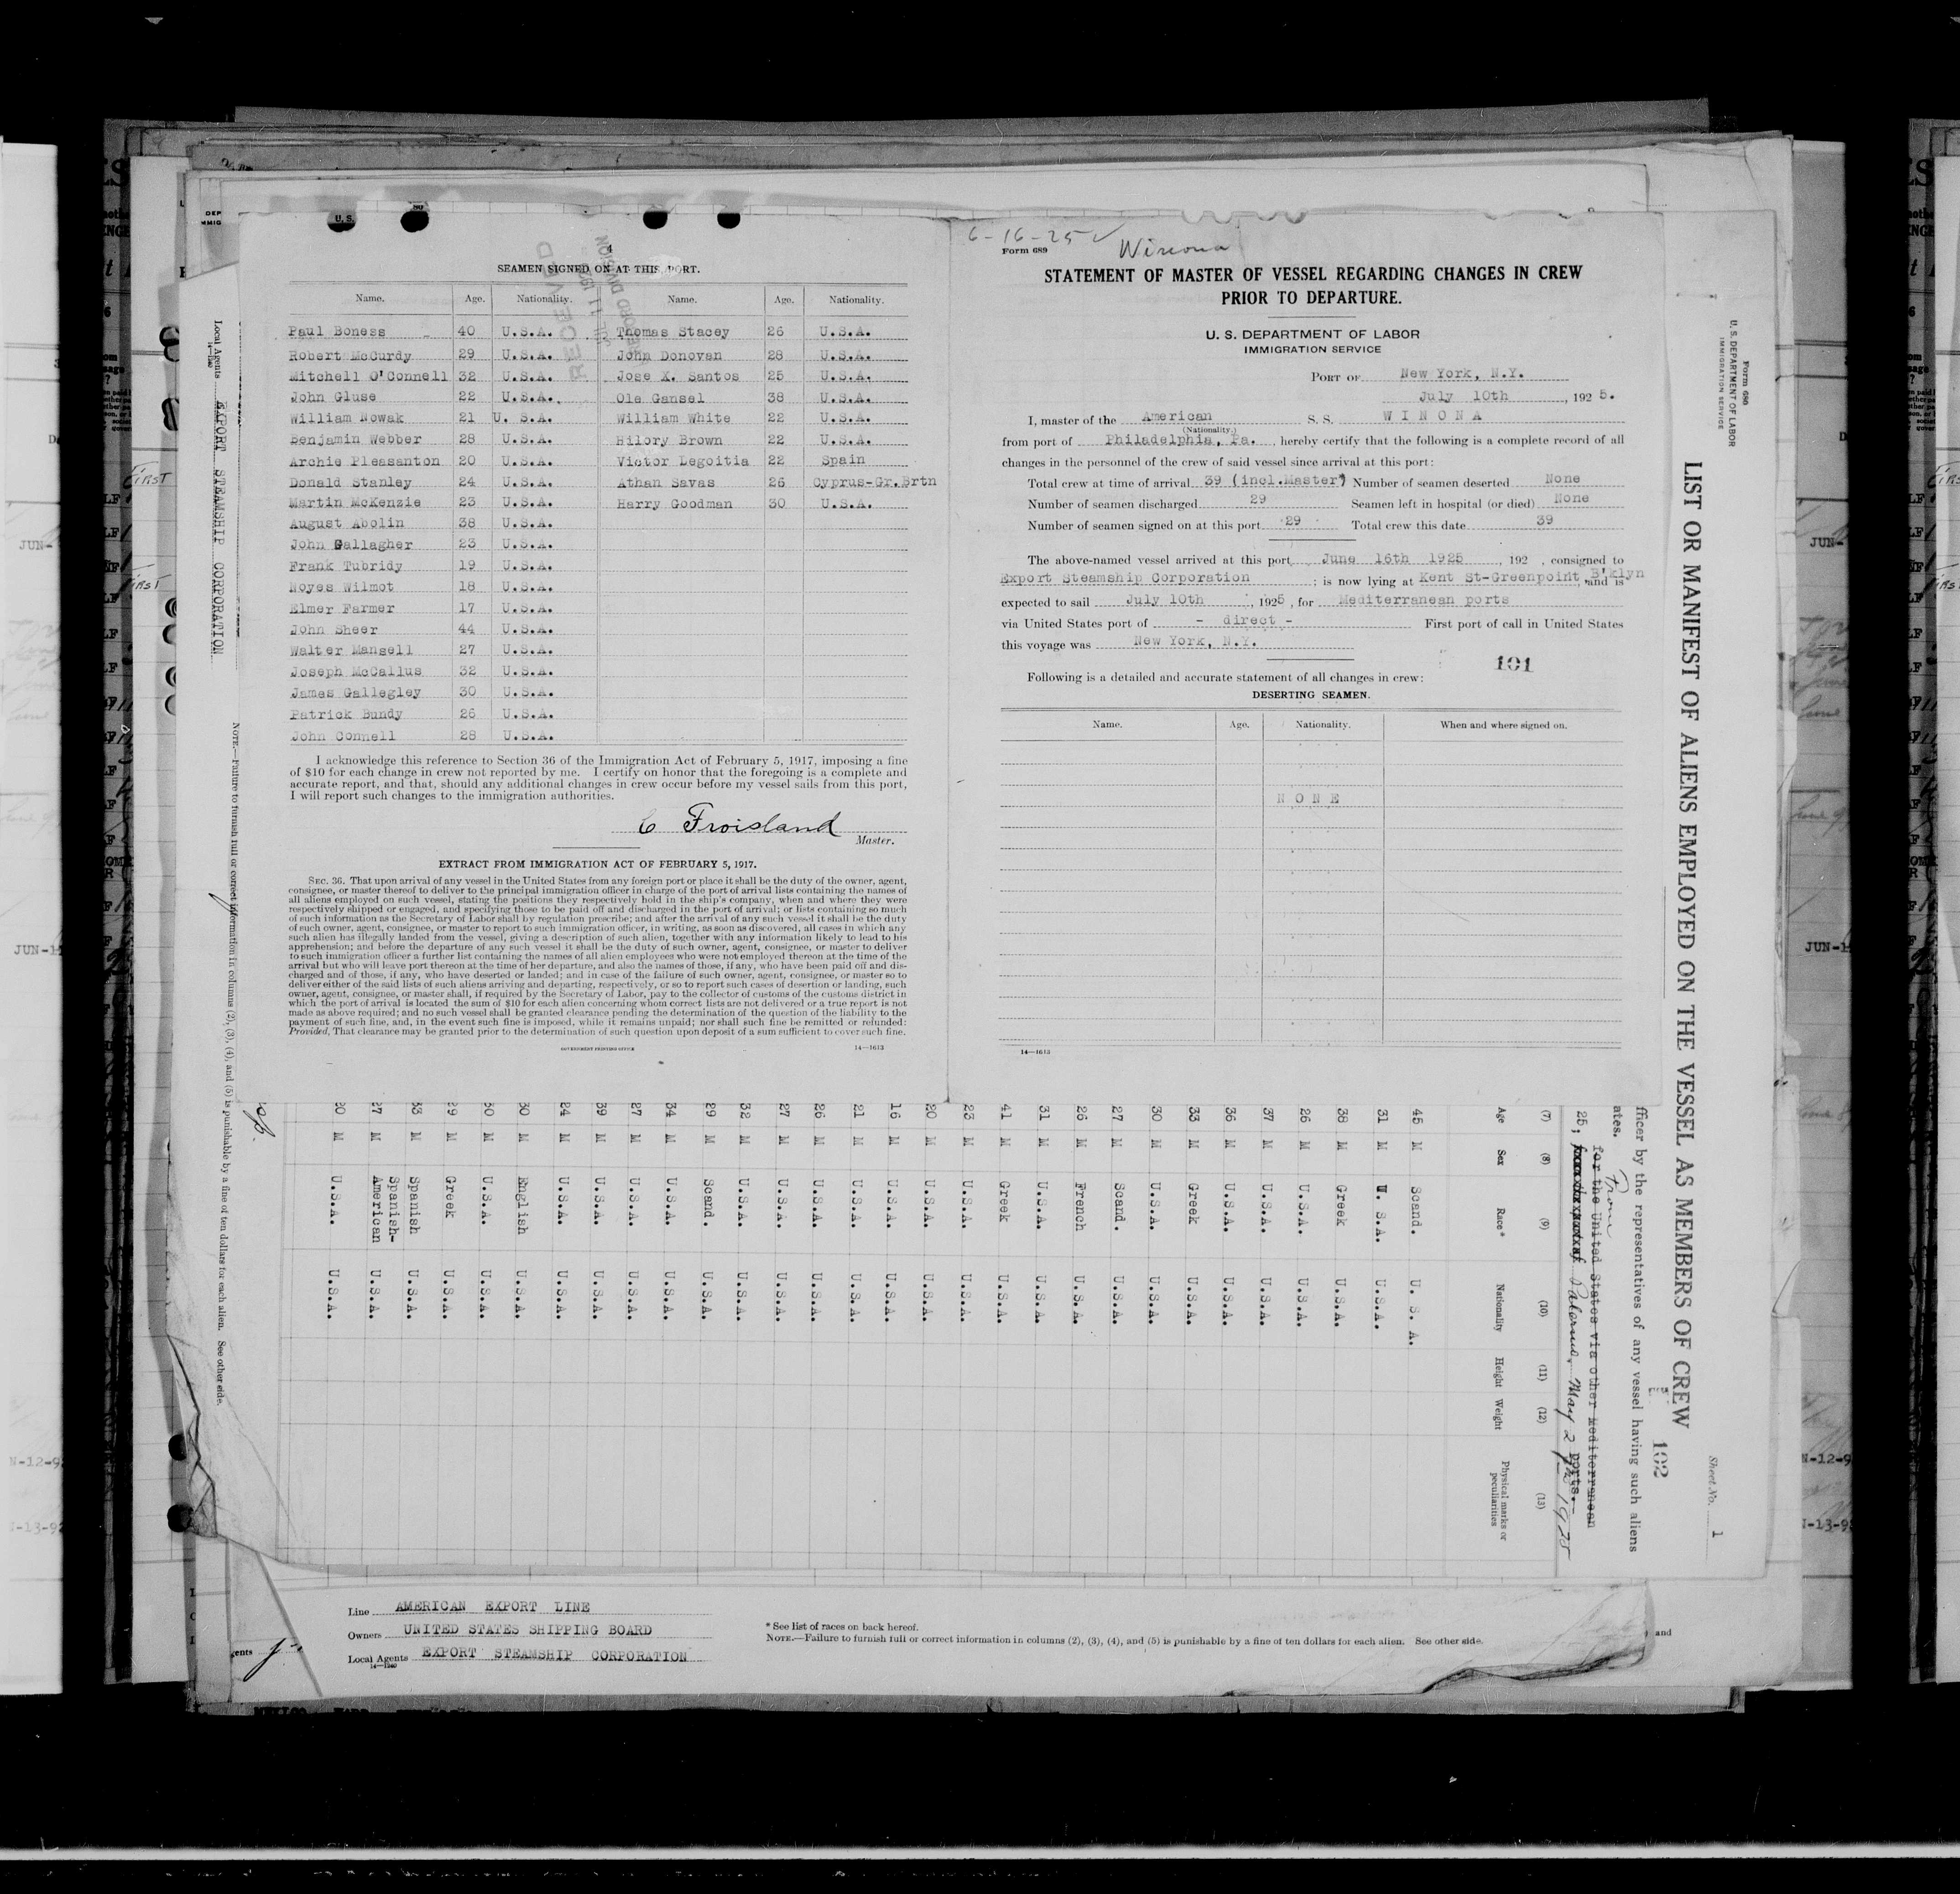 4
SEAMEN SIGNED ON AT THIS PORT.
Name. Age. Nationality. Name. Age. Nationality.
Paul Boness 40 U.S.A. Thomas Stacey 26 U.S.A.
Robert McCurdy 29 U.S.A. John Donovan 28 U.S.A.
Mitchell O'Connell 32 U.S.A. Jose X. Santos 25 U.S.A.
John Gluse 22 U.S.A. Ole Gansel 38 U.S.A.
William Nowak 21 U. S.A. William White 22 U.S.A.
Benjamin Webber 28 U.S.A. Hilory Brown 22 U.S.A.
Archie Pleasanton 20 U.S.A. Victor Legoitia 22 Spain
Donald Stanley 24 U.S.A. Athan Savas 26 Cyprus-Gr.Brtn
Martin McKenzie 23 U.S.A. Harry Goodman 30 U.S.A.
August Abolin 38 U.S.A.
John Gallagher 23 U.S.A.
Frank Tubridy 19 U.S.A.
Noyes Wilmot 18 U.S.A.
Elmer Farmer 17 U.S.A.
John Sheer 44 U.S.A.
Walter Mansell 27 U.S.A.
Joseph McCallus 32 U.S.A.
James Gallegley 30 U.S.A.
Patrick Bundy 26 U.S.A.
John Connell 28 U.S.A.
RECEIVED
I acknowledge this reference to Section 36 of the Immigration Act of February 5, 1917, imposing a fine
of $10 for each change in crew not reported by me. I certify on honor that the foregoing is a complete and
accurate report, and that, should any additional changes in crew occur before my vessel sails from this port,
I will report such changes to the immigration authorities.
C Froisland
Master.
EXTRACT FROM IMMIGRATION ACT OF FEBRUARY 5, 1917.
SEC. 36. That upon arrival of any vessel in the United States from any foreign port or place it shall be the duty of the owner, agent,
consignee, or master thereof to deliver to the principal immigration officer in charge of the port of arrival lists containing the names of
all aliens employed on such vessel, stating the positions they respectively hold in the ship's company, when and where they were
respectively shipped or engaged, and specifying those to be paid off and discharged in the port of arrival; or lists containing so much
of such information as the Secretary of Labor shall by regulation prescribe; and after the arrival of any such vessel it shall be the duty
of such owner, agent, consignee, or master to report to such immigration officer, in writing, as soon as discovered, all cases in which any
such alien has illegally landed from the vessel, giving a description of such alien, together with any information likely to lead to his
apprehension; and before the departure of any such vessel it shall be the duty of such owner, agent, consignee, or master to deliver
to such immigration officer a further list containing the names of all alien employees who were not employed thereon at the time of the
arrival but who will leave port thereon at the time of her departure, and also the names of those, if any, who have been paid off and dis-
charged and of those, if any, who have deserted or landed; and in case of the failure of such owner, agent, consignee, or master so to
deliver either of the said lists of such aliens arriving and departing, respectively, or so to report such cases of desertion or landing, such
owner, agent, consignee, or master shall, if required by the Secretary of Labor, pay to the collector of customs of the customs district in
which the port of arrival is located the sum of $10 for each alien concerning whom correct lists are not delivered or a true report is not
made as above required; and no such vessel shall be granted clearance pending the determination of the question of the liability to the
payment of such fine, and, in the event such fine is imposed, while it remains unpaid; nor shall such fine be remitted or refunded:
Provided, That clearance may be granted prior to the determination of such question upon deposit of a sum sufficient to cover such fine.
GOVERNMENT PRINTING OFFICE 14—1613
6-16-25
Form 689 Winona
STATEMENT OF MASTER OF VESSEL REGARDING CHANGES IN CREW
PRIOR TO DEPARTURE.
U. S. DEPARTMENT OF LABOR
IMMIGRATION SERVICE
PORT OF New York, N.Y.
July 10th, 1925.
I, master of the American S. S. WINONA
(Nationality.)
from port of Philadelphia, Pa., hereby certify that the following is a complete record of all
changes in the personnel of the crew of said vessel since arrival at this port:
Total crew at time of arrival 39 (incl.Master) Number of seamen deserted None
Number of seamen discharged 29 Seamen left in hospital (or died) None
Number of seamen signed on at this port 29 Total crew this date 39
The above-named vessel arrived at this port June 16th 1925, 192 , consigned to
Export Steamship Corporation; is now lying at Kent St-Greenpoint, B'klyn and is
expected to sail July 10th, 1925, for Mediterranean ports
via United States port of - direct - First port of call in United States
this voyage was New York, N.Y.
101
Following is a detailed and accurate statement of all changes in crew:
DESERTING SEAMEN.
Name. Age. Nationality. When and where signed on.
NONE
14—1613
Form 680
U. S. DEPARTMENT OF LABOR
IMMIGRATION SERVICE
Sheet No. 1
LIST OR MANIFEST OF ALIENS EMPLOYED ON THE VESSEL AS MEMBERS OF CREW
102
fficer by the representatives of any vessel having such aliens
ates.
From
for the United States via other Mediterranean
ports.
25, Palermo, May 27th 1925
(7) (8) (9) (10) (11) (12) (13)
Age Sex Race* Nationality Height Weight Physical marks or peculiarities
45 M Scand. U. S. A.
31 M U. S.A. U.S.A.
38 M Greek U.S.A.
26 M U.S.A. U.S.A.
37 M U.S.A. U.S.A.
36 M U.S.A. U.S.A.
33 M Greek U.S.A.
30 M U.S.A. U.S.A.
27 M Scand. U.S.A.
26 M French U.S.A.
31 M U.S.A. U.S.A.
41 M Greek U.S.A.
23 M U.S.A. U.S.A.
20 M U.S.A. U.S.A.
16 M U.S.A. U.S.A.
21 M U.S.A. U.S.A.
26 M U.S.A. U.S.A.
27 M U.S.A. U.S.A.
32 M U.S.A. U.S.A.
29 M Scand. U.S.A.
34 M U.S.A. U.S.A.
27 M U.S.A. U.S.A.
39 M U.S.A. U.S.A.
24 M U.S.A. U.S.A.
30 M English U.S.A.
30 M U.S.A. U.S.A.
29 M Greek U.S.A.
33 M Spanish U.S.A.
27 M Spanish-American U.S.A.
20 M U.S.A. U.S.A.
NOTE.—Failure to furnish full or correct information in columns (2), (3), (4), and (5) is punishable by a fine of ten dollars for each alien. See other side.
Local Agents EXPORT STEAMSHIP CORPORATION
Line AMERICAN EXPORT LINE
Owners UNITED STATES SHIPPING BOARD
Local Agents EXPORT STEAMSHIP CORPORATION
14—1240
* See list of races on back hereof.
NOTE.—Failure to furnish full or correct information in columns (2), (3), (4), and (5) is punishable by a fine of ten dollars for each alien. See other side.